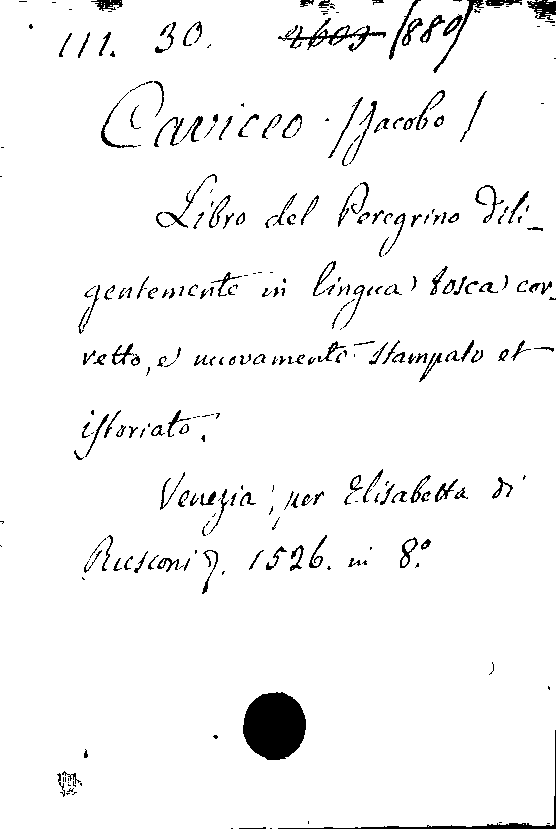 111. 30. 2603 (880)
Caviceo. /Jacobo/
Libro del Peregrino dili-
gentemente in lingua tosca cor-
retto, e nuovamente stampato et
istoriato.
Venezia, per Elisabetta di
Rusconi. 1526. in 8.º